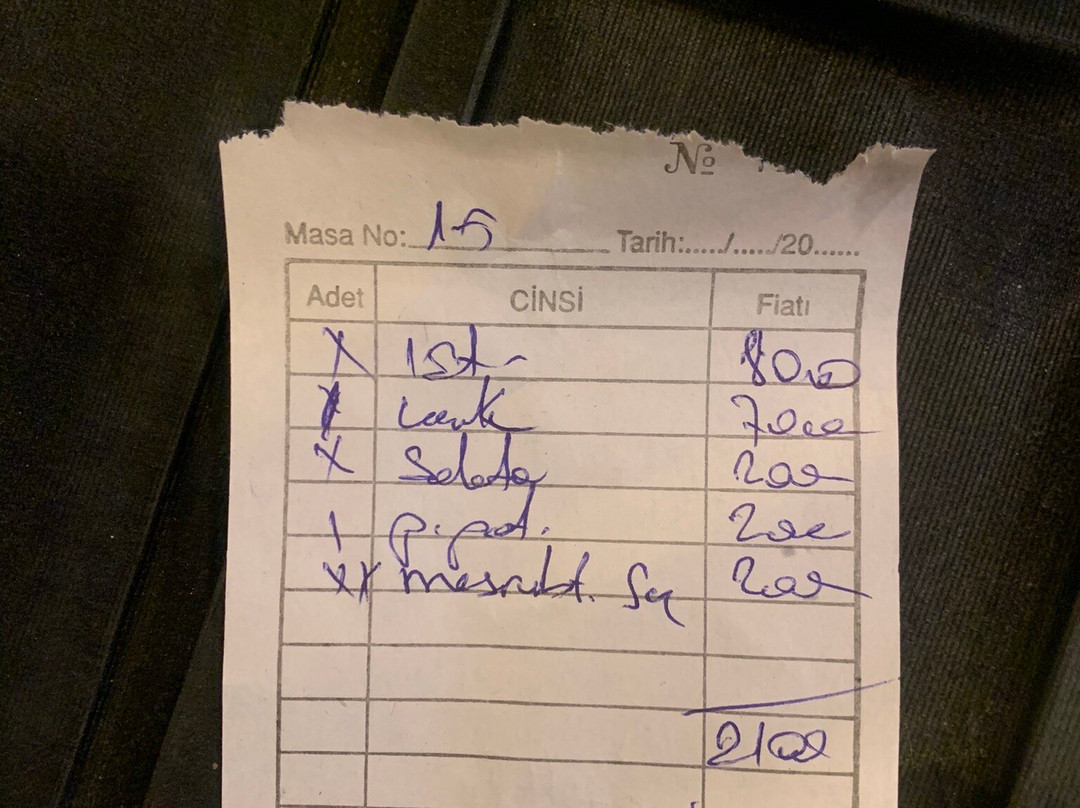 №
Masa No: 15 Tarih:...../...../20......
Adet CİNSİ Fiatı
X Ist- 800
X 700
X Salata 200
1 p. pat. 200
XX mesrubt. Su 200
2100